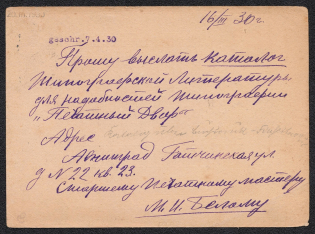 16/III 30 г.
geschr. 7.4.30
Прошу выслать каталог
Типографской Литературы
для надобностей типографии
„Печатный Двор“
Адрес
Ленинград Гатчинская ул
д N 22 кв. 23.
Старшему Печатному мастеру
М. И. Белому